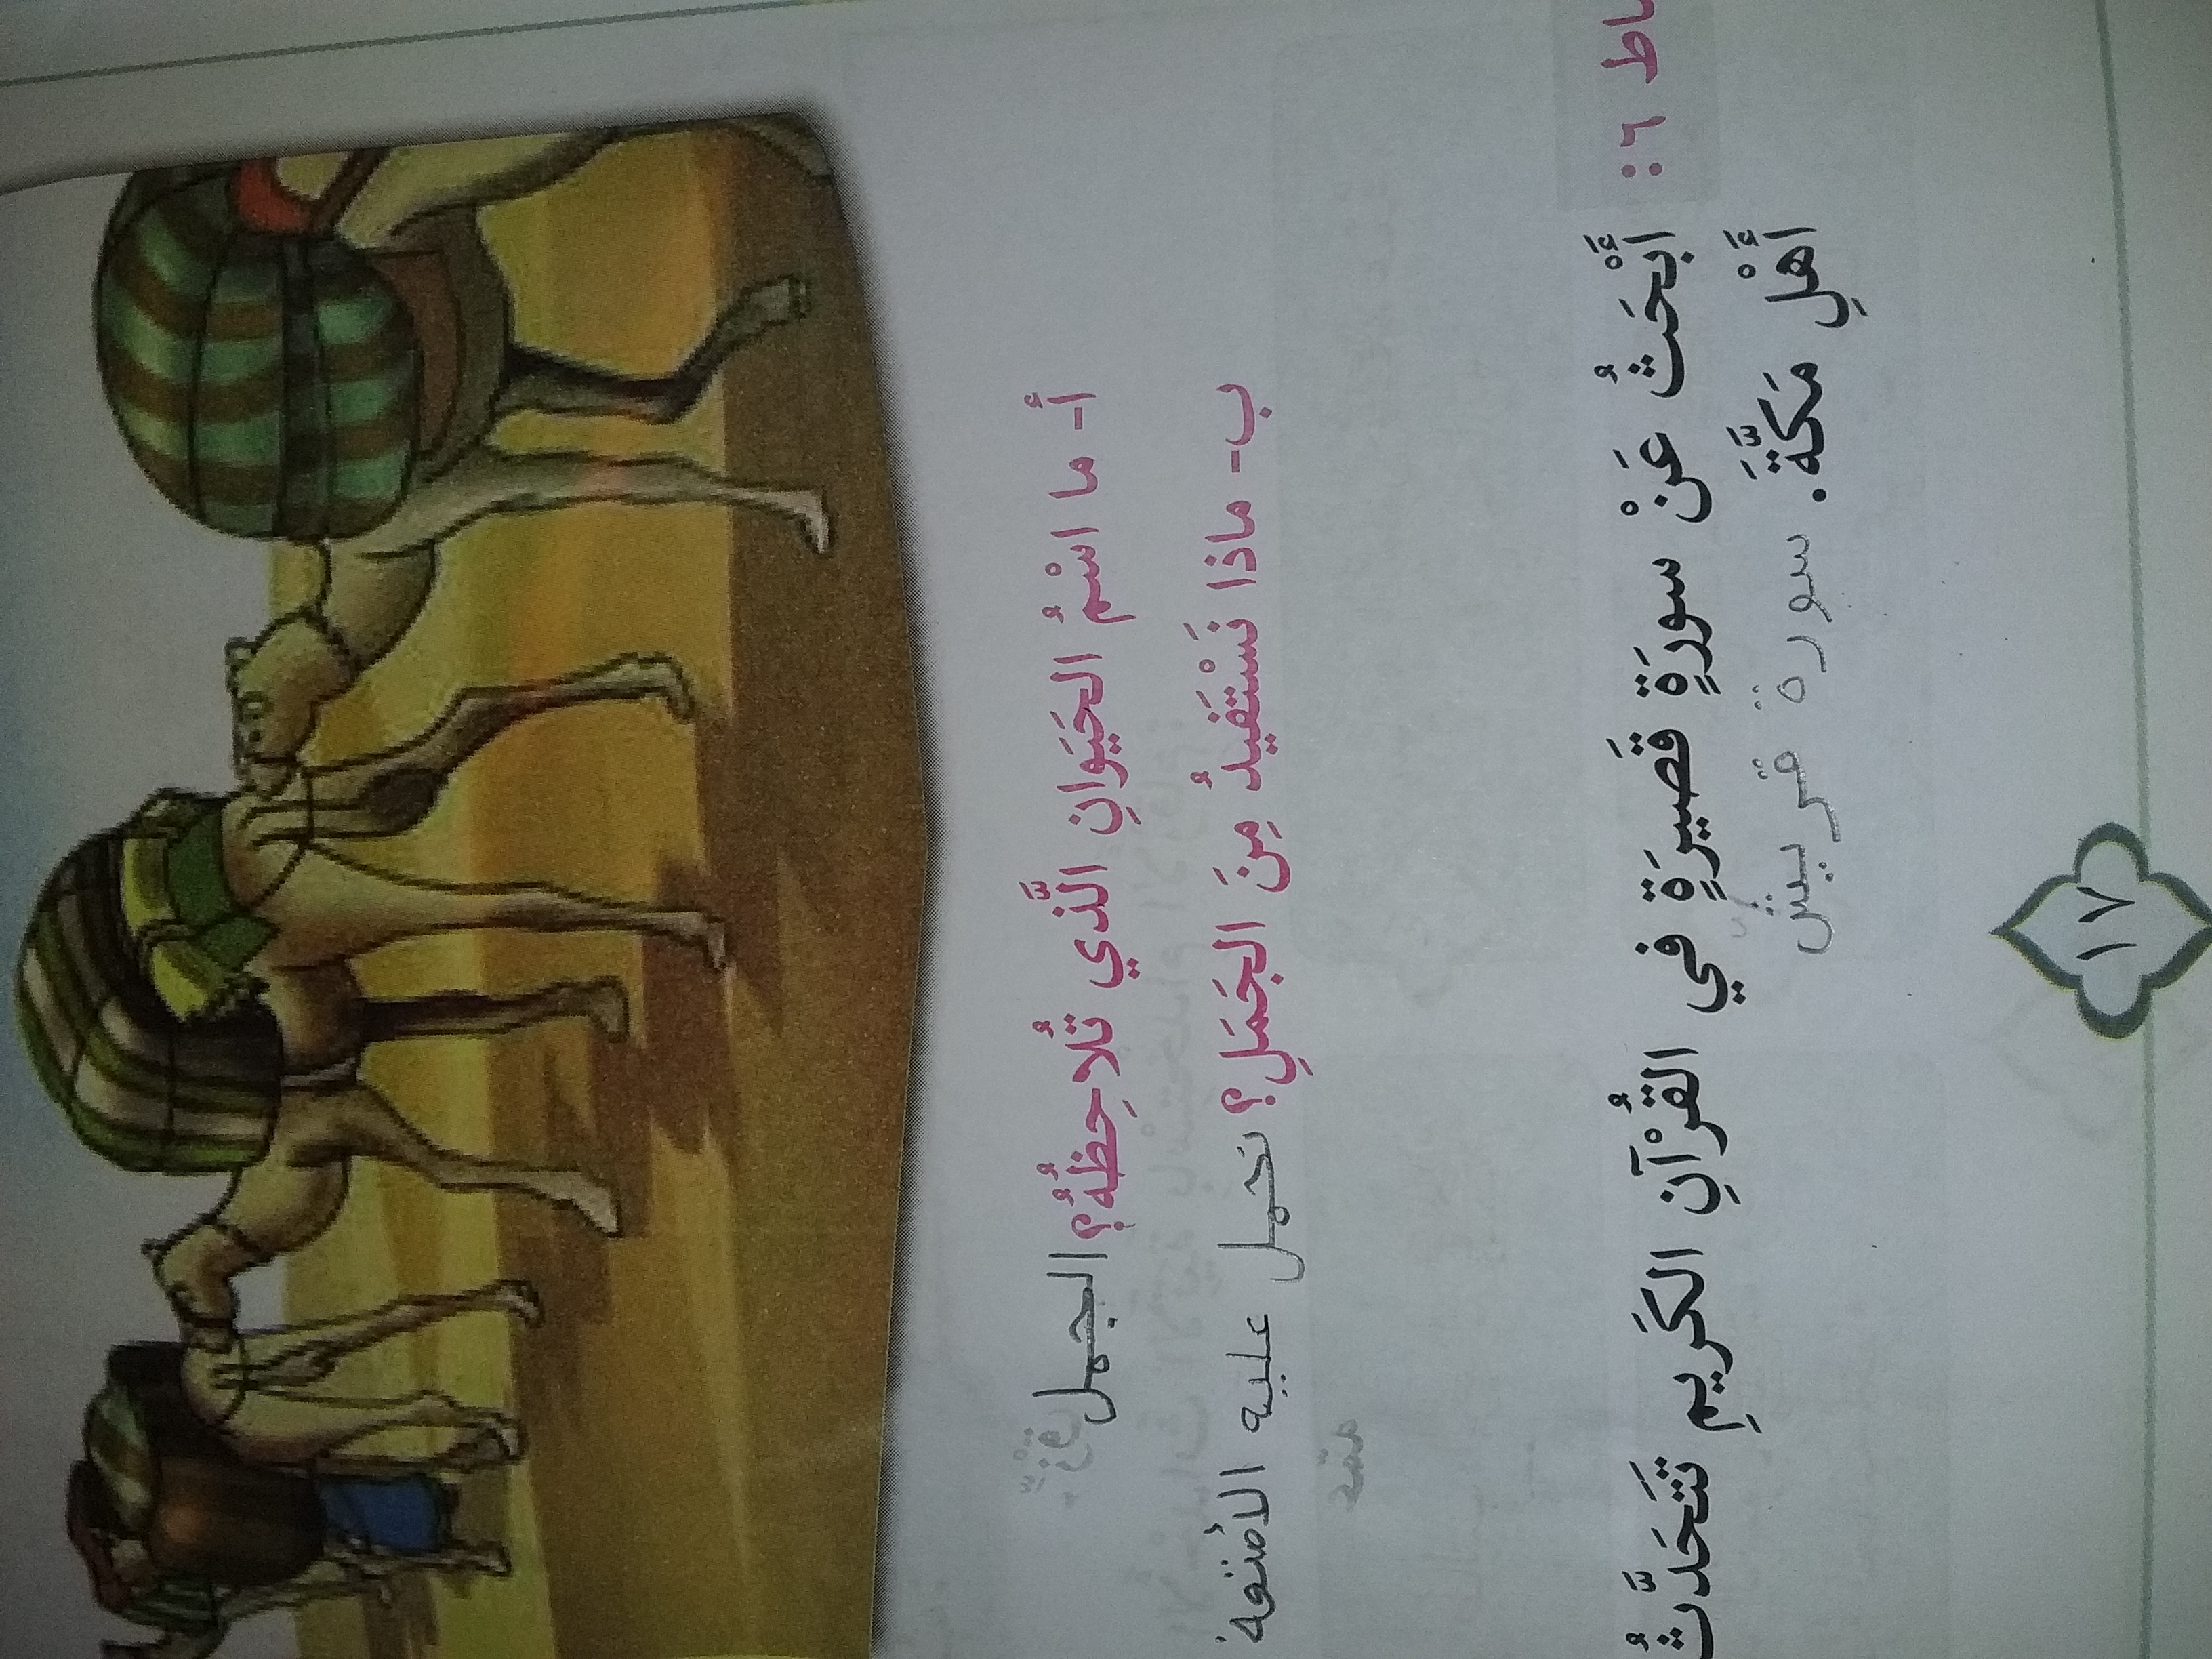 أ- ما اسْمُ الحَيَوانِ الَّذي تُلاحِظُهُ؟ الجمل
ب- ماذا نَسْتَفيدُ مِنَ الجَمَلِ؟ نحمل عليه الأمتعة
ـاط ٦: أَبْحَثُ عَنْ سورَةٍ قَصيرَةٍ في القُرْآنِ الكَريمِ تَتَحَدَّثُ
أَهْلِ مَكَّةَ. سورة قريش
١٧